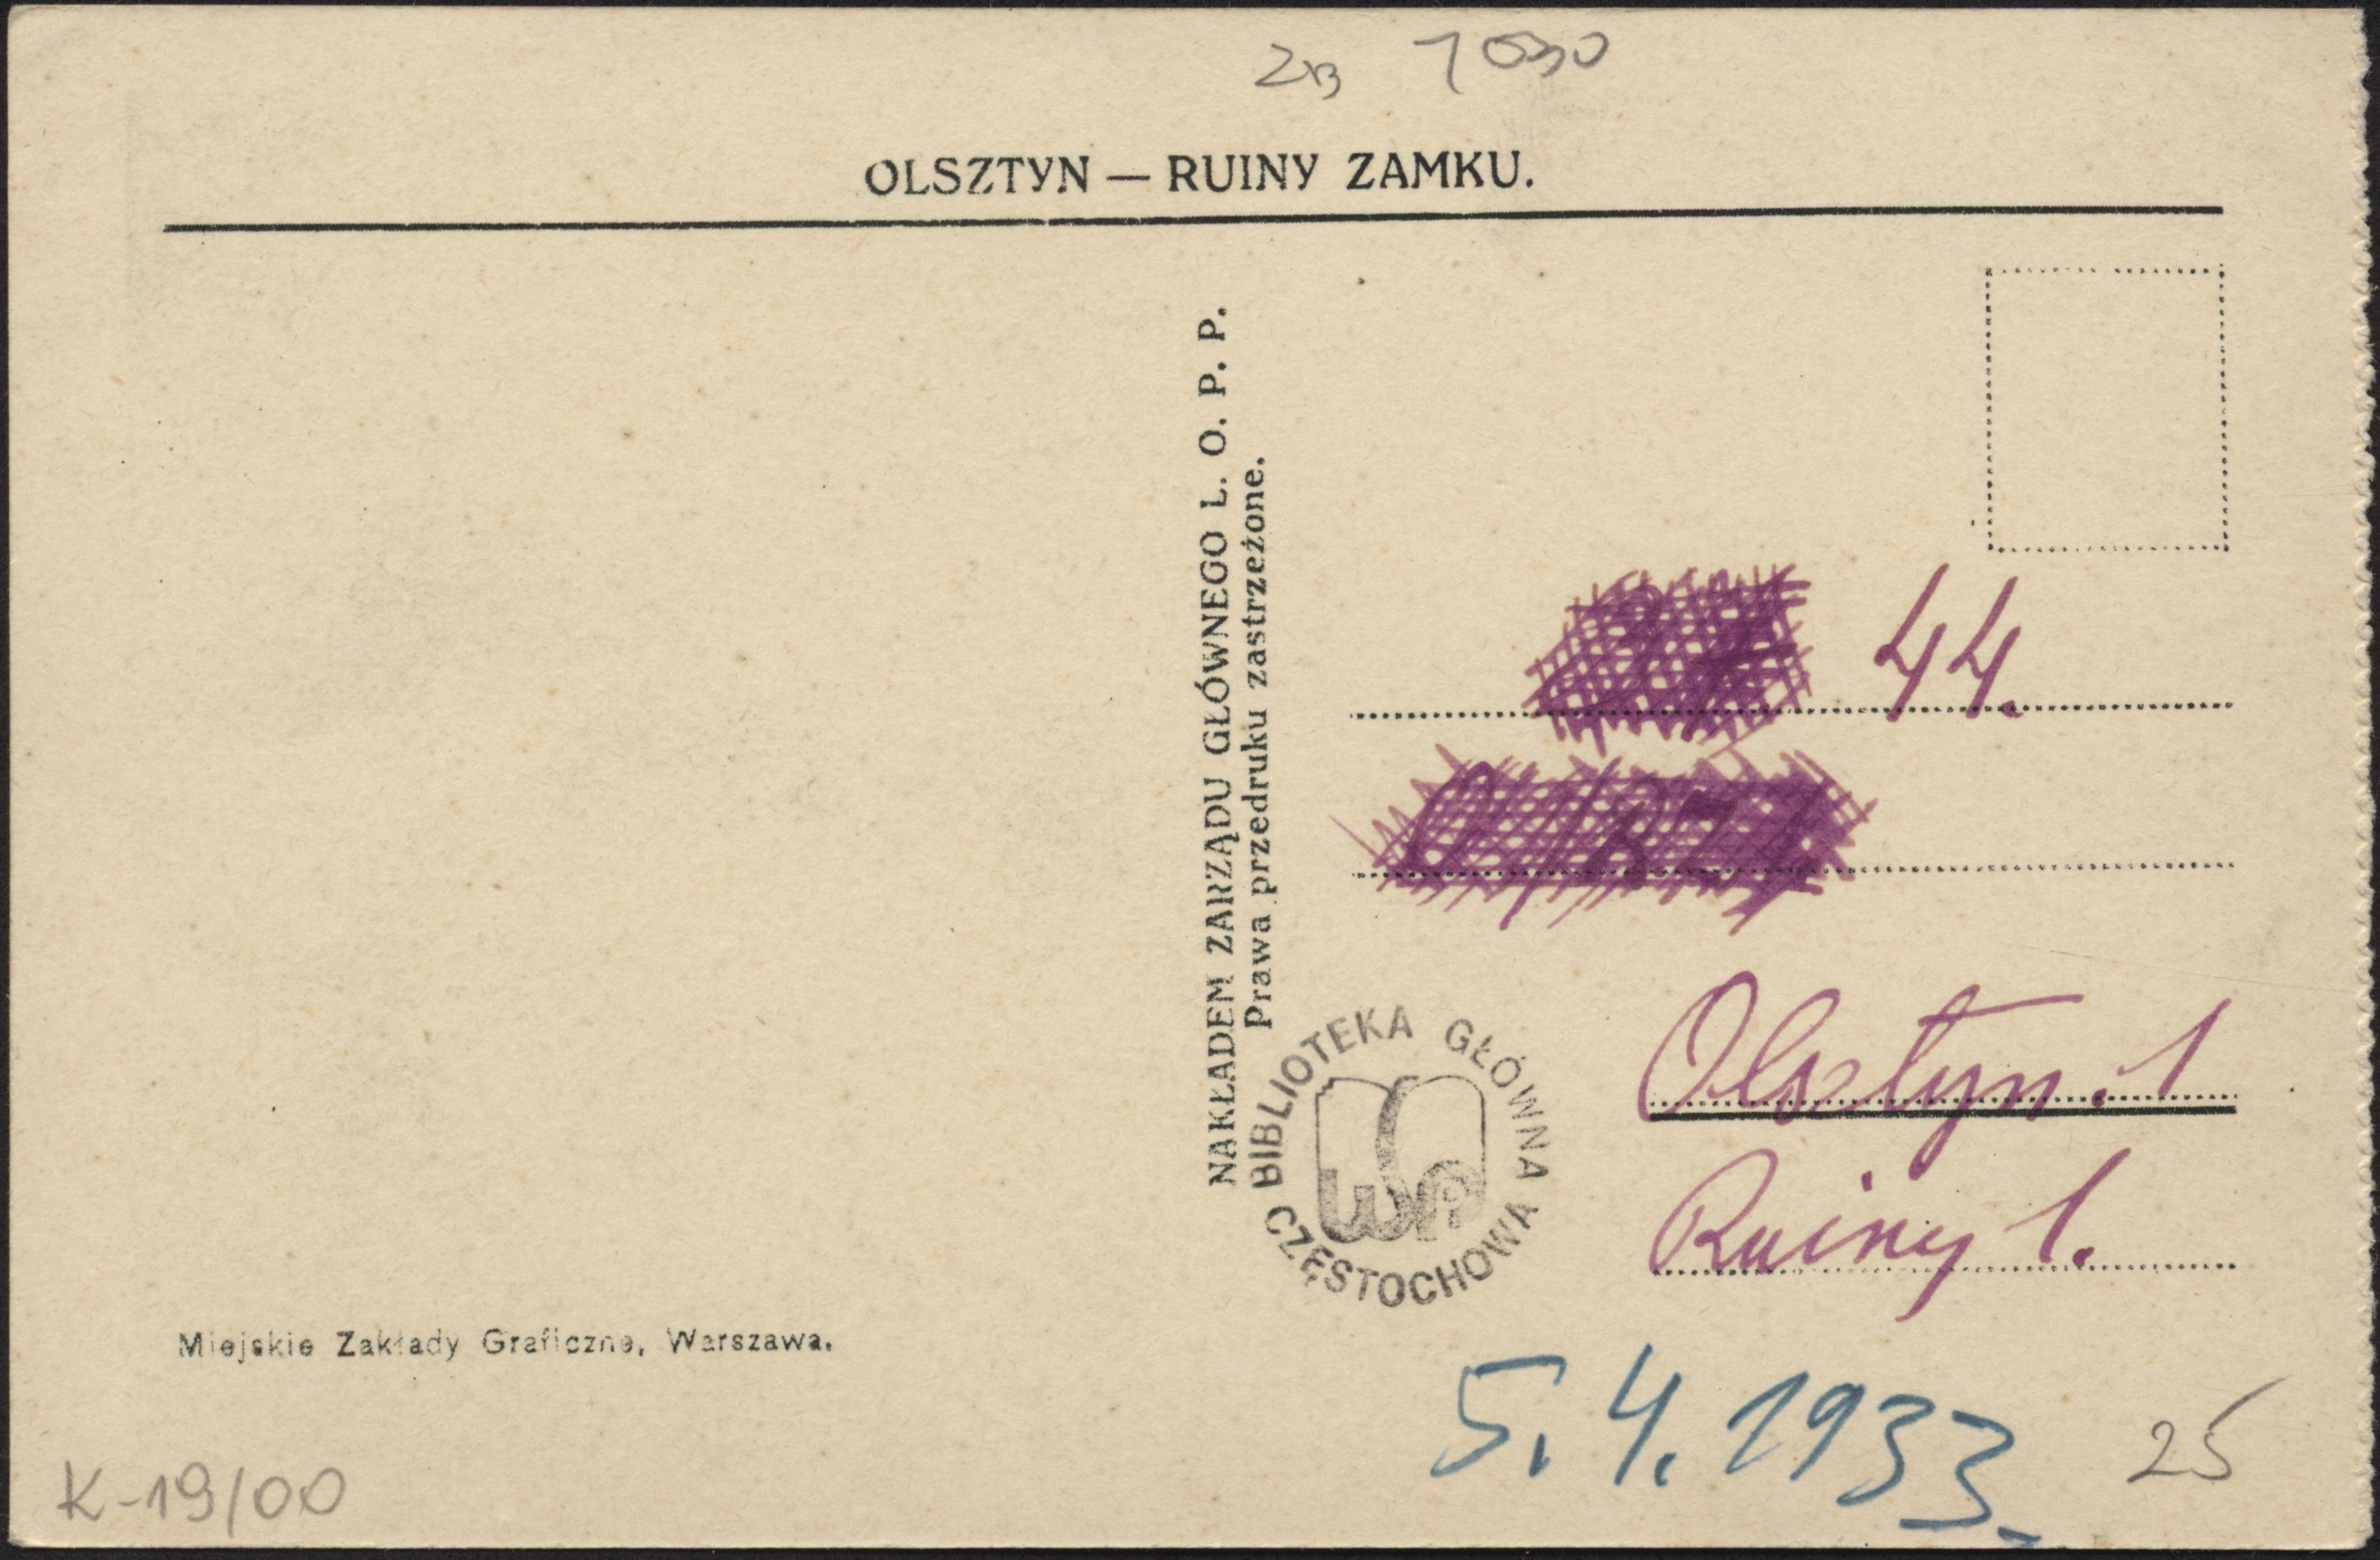 ZB 7030
OLSZTYN — RUINY ZAMKU.
NAKŁADEM ZARZĄDU GŁÓWNEGO L. O. P. P.
Prawa przedruku zastrzeżone.
44.
Olsztyn. 1
Ruiny 1.
BIBLIOTEKA GŁÓWNA
WSP
CZĘSTOCHOWA
Miejskie Zakłady Graficzne, Warszawa.
5. 4. 1933.
25
K-19/00